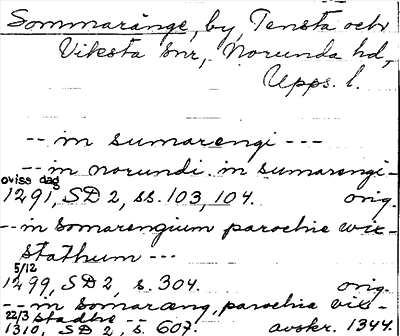 Sommaränge, by, Tensta och
Viksta snr, Norunda hd,
Upps. l.
-- in sumarengi ---
-- in norundi in sumarengi -
oviss dag
1291, SD 2, ss. 103, 104. orig.
-- in somarengium parochie wic-
stathum ---
5/12
1299, SD 2, s. 304. orig.
-- in somaræng, parochia vik-
22/3 stadhe --
1310, SD 2, s. 607. avskr. 1344.